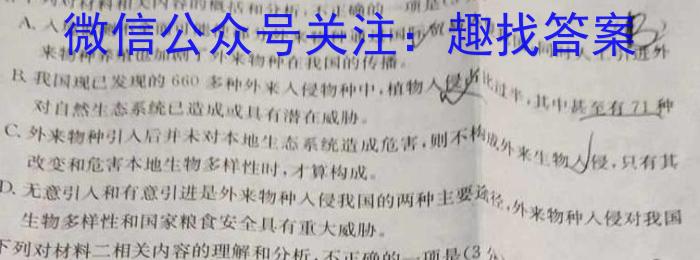 下列对材料相关内容的概括和分析,不正确的一项是(
微信公众号关注:趣找答案
A. 人
B
来物种 外来物种在我国的传播。
B. 我国现已发现的660多种外来入侵物种中,植物入侵 比过半,其中甚至有71种
对自然生态系统已造成或具有潜在威胁。
C. 外来物种引入后并未对本地生态系统造成危害,则不构成外来生物入侵,只有其
改变和危害本地生物多样性时,才算构成。
D. 无意引入和有意引进是外来物种入侵我国的两种主要途径,外来物种入侵对我国
生物多样性和国家粮食安全具有重大威胁。
下列对材料二相关内容的理解和分析,不正确的一项是(3分